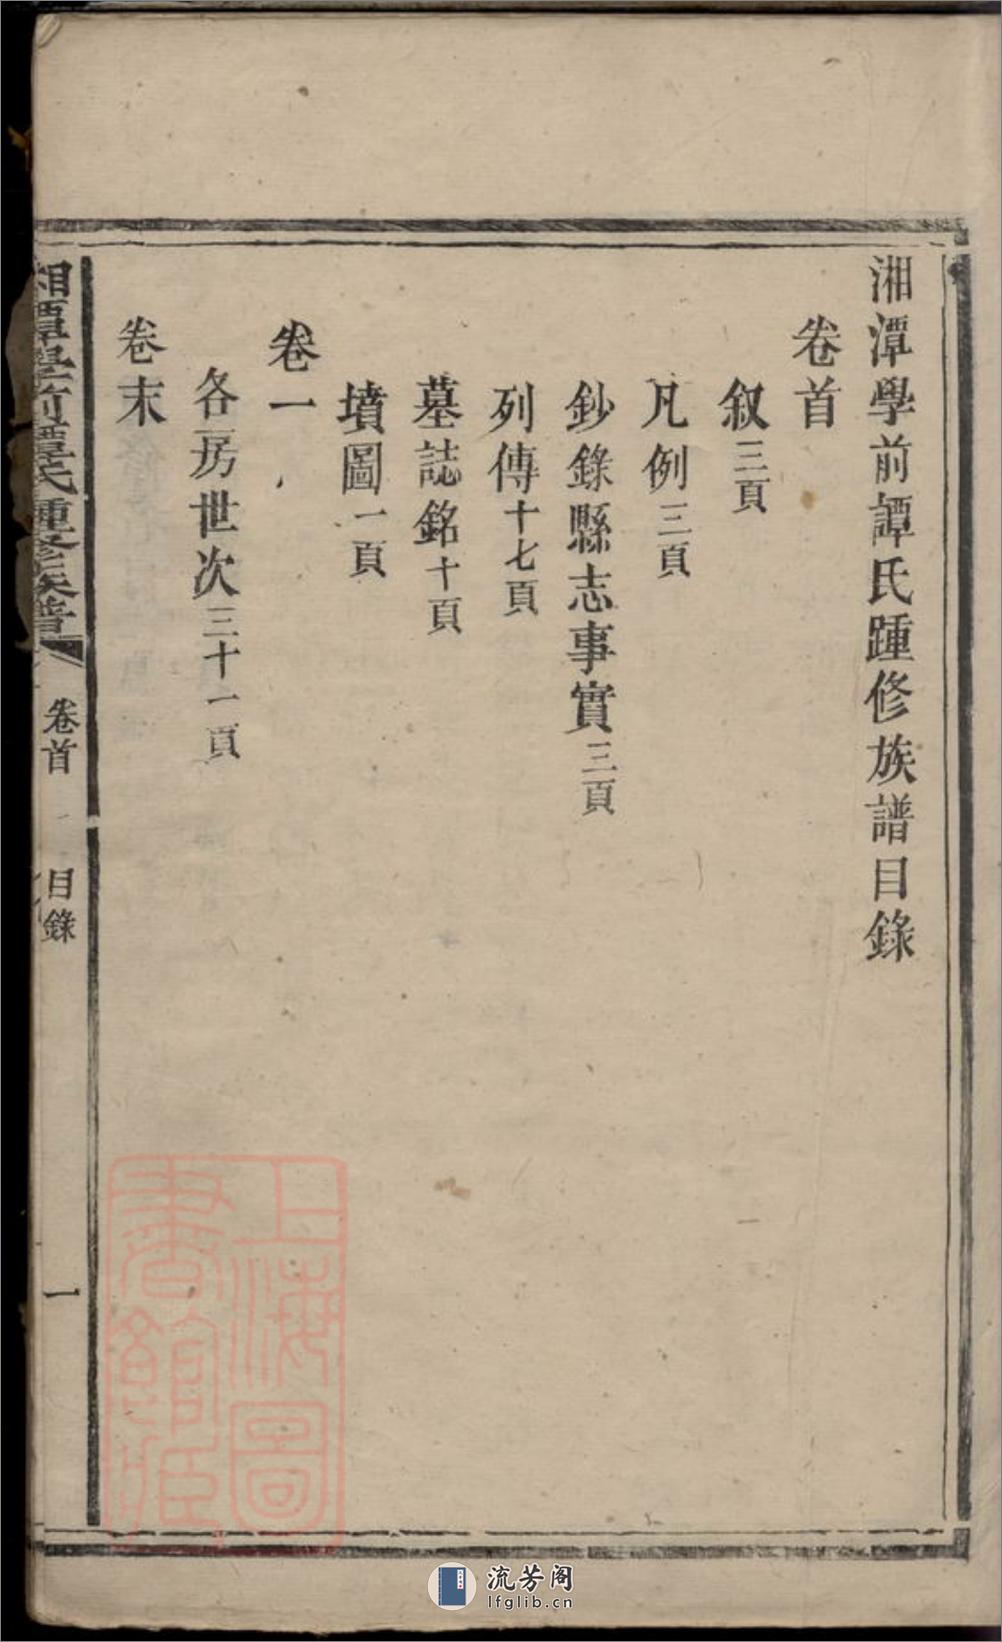 湘潭學前譚氏踵修族譜目錄
卷首
叙三頁
凡例三頁
鈔錄縣志事實三頁
列傳十七頁
墓誌銘十頁
墳圖一頁
卷一
各房世次三十一頁
卷末
湘潭學前譚氏踵修族譜
卷首
目錄
一
上海圖
書館藏
流芳阁
lfglib.cn